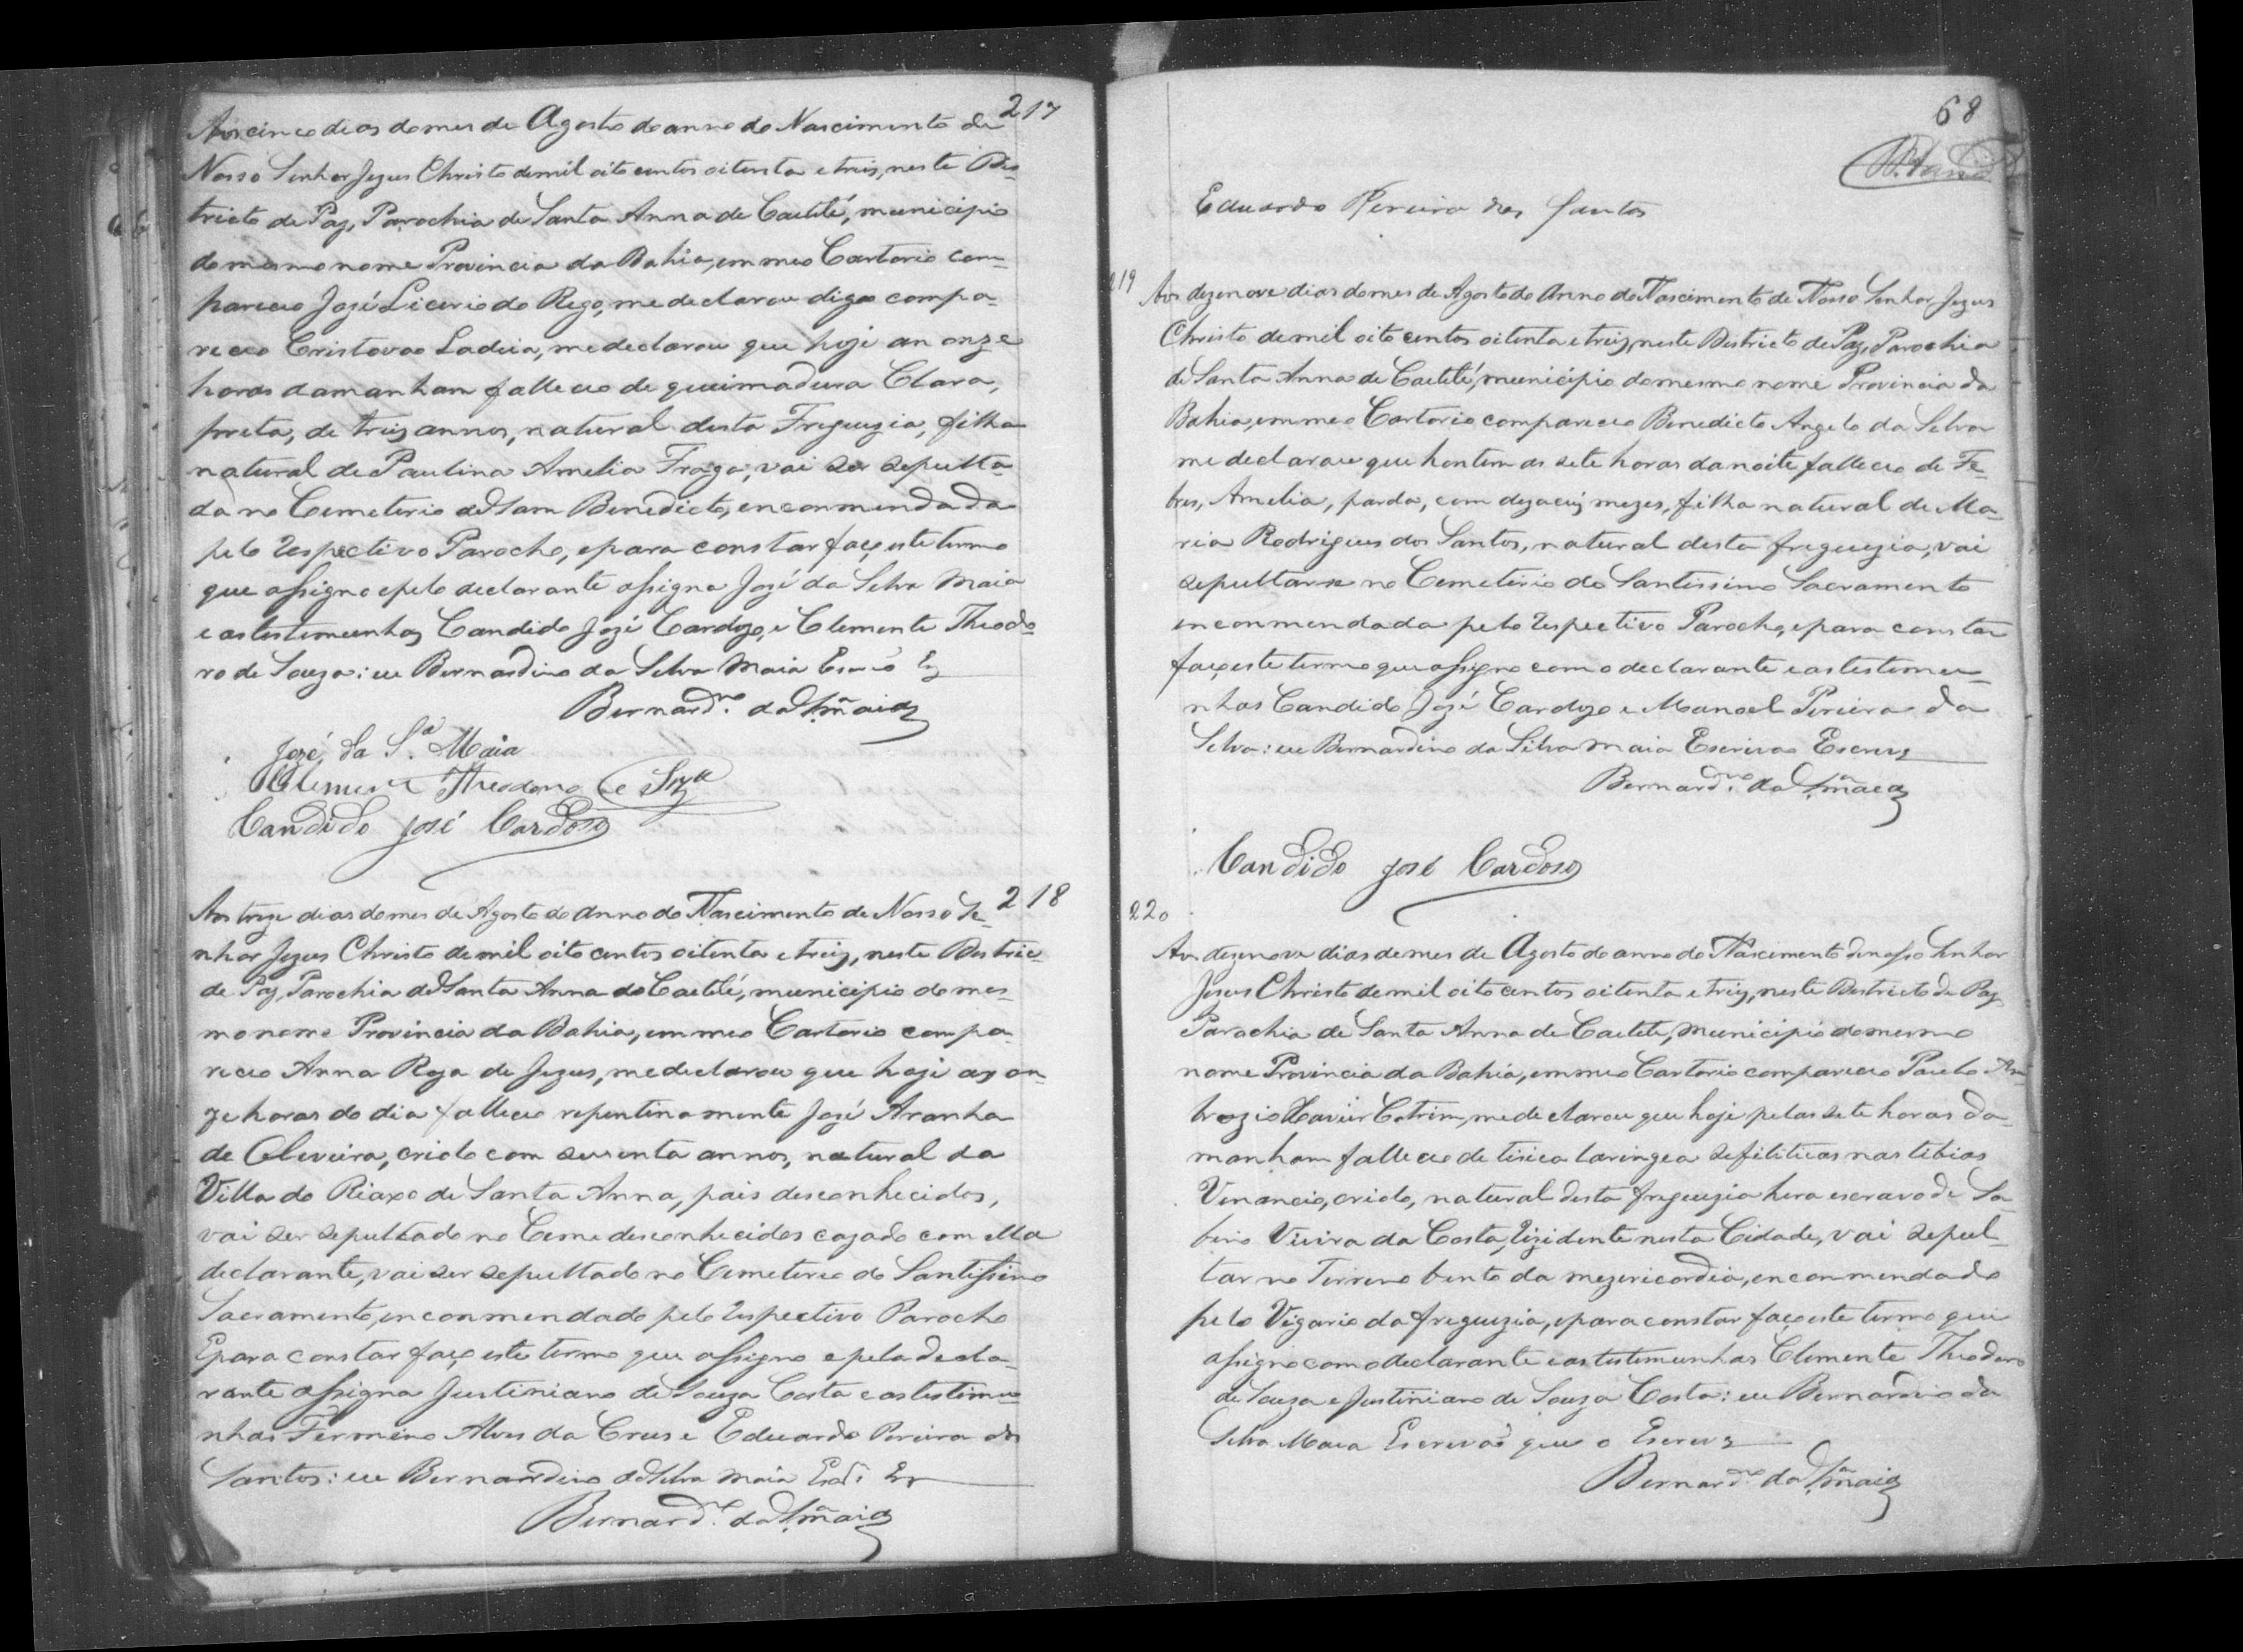 217
Aos cinco dias do mes de Agosto do anno do Nascimento de
Nosso Senhor Jezus Christo de mil oito centos oitenta e treis, neste Des-
tricto de Paz, Parochia de Santa Anna de Caetité, municipio
do mesmo nome Provincia da Bahia, em meo Cartorio com-
pareceo José Licerio do Rego, me declarou digo compa-
receo Cristovao Ladeia, me declarou que hoje an onze
horas da manhan falleceo de queimadura Clara,
preta, de treis annos, natural desta Freguezia, filha
natural de Paulina Amelia Fraga, vai ser sepulta-
da no Cemeterio de Sam Benedicto, enconmendada
pelo respectivo Parocho, e para constar faço este termo
que assigno e pelo declarante assigna José da Silva Maia
e as testemunhas Candido José Cardozo, e Clemente Theodo-
ro de Souza: eu Bernardino da Silva Maia
Bernard.no da S.a Maia
José da S.a Maia
Clemente Theodoro de Sza
Candido José Cardoso
218
Aos treze dias do mes de Agosto do anno do Nascimento de Nosso Se-
nhor Jezus Christo de mil oito centos oitenta e treiz, neste Destric-
de Paz, Parochia de Santa Anna do Caetité, municipio do mes-
mo nome Provincia da Bahia, em meo Cartorio compa-
receo Anna Roza de Jezus, me declarou que hoje as on-
ze horas do dia falleceo repentinamente José Aranha
de Oliveira, criolo com sessenta annos, natural da
Villa do Riaxo de Santa Anna, pais desconhecidos,
vai ser sepultado no Ceme desconhecidos cazado com ella
declarante, vai ser sepultado no Cemeterio do Santissimo
Sacramento, enconmendado pelo respectivo Parocho
E para constar faço este termo que assigno e pela decla-
rante assigna Justiniano de Souza Costa e as testimu-
nhas Fermino Alves da Crus e Eduardo Pereira dos
Santos: eu Bernardino da Silva Maia
Bernard.no da S.a Maia
68
Eduardo Pereira dos Santos
219
Aos dezenove dias do mes de Agosto do Anno do Nascimento de Nosso Senhor Jezus
Christo de mil oito centos oitenta e treiz, neste Destricto de Paz, Parochia
de Santa Anna de Caetité, municipio do mesmo nome Provincia da
Bahia, em meo Cartorio compareceo Benedicto Angelo da Silva
me declarou que hontem as sete horas da noite falleceo de Fe-
bres, Amelia, parda, com dezaceiz mezes, filha natural de Ma-
ria Rodrigues dos Santos, natural desta freguezia, vai
sepultar se no Cemeterio do Santissimo Sacramento
enconmendada pelo respectivo Parocho, e para constar
faço este termo que assigno com o declarante e as testemu-
nhas Candido José Cardozo e Manoel Pereira da
Silva: eu Bernardino da Silva Maia Escrivao Escrevy
Bernard.no da S.a Maia
Candido José Cardoso
220
Aos dezenove dias do mes de Agosto do anno do Nascimento de nosso Senhor
Jezus Christo de mil oito centos oitenta e treiz, neste Destricto de Paz
Parochia de Santa Anna de Caetite, municipio do mesmo
nome Provincia da Bahia, em meo Cartorio compareceo Paulo Am-
brozio Xavier Cotrim, me declarou que hoje pelas sete horas da
manham falleceo de tisica laringea sefiliticas nas tibias
Venancio, criolo, natural desta freguezia hera escravo de Sa-
bino Vieira da Costa, rizidente nesta Cidade, vai sepul-
tar no Terreno bento da mezericordia, enconmendado
pelo Vigario da freguezia, e para constar faço este termo que
assigno com o declarante e as testemunhas Clemente Theodoro
de Souza e Justiniano de Souza Costa: eu Bernardino da
Silva Maia Escrevão que o Escrevy
Bernard.no da S.a Maia